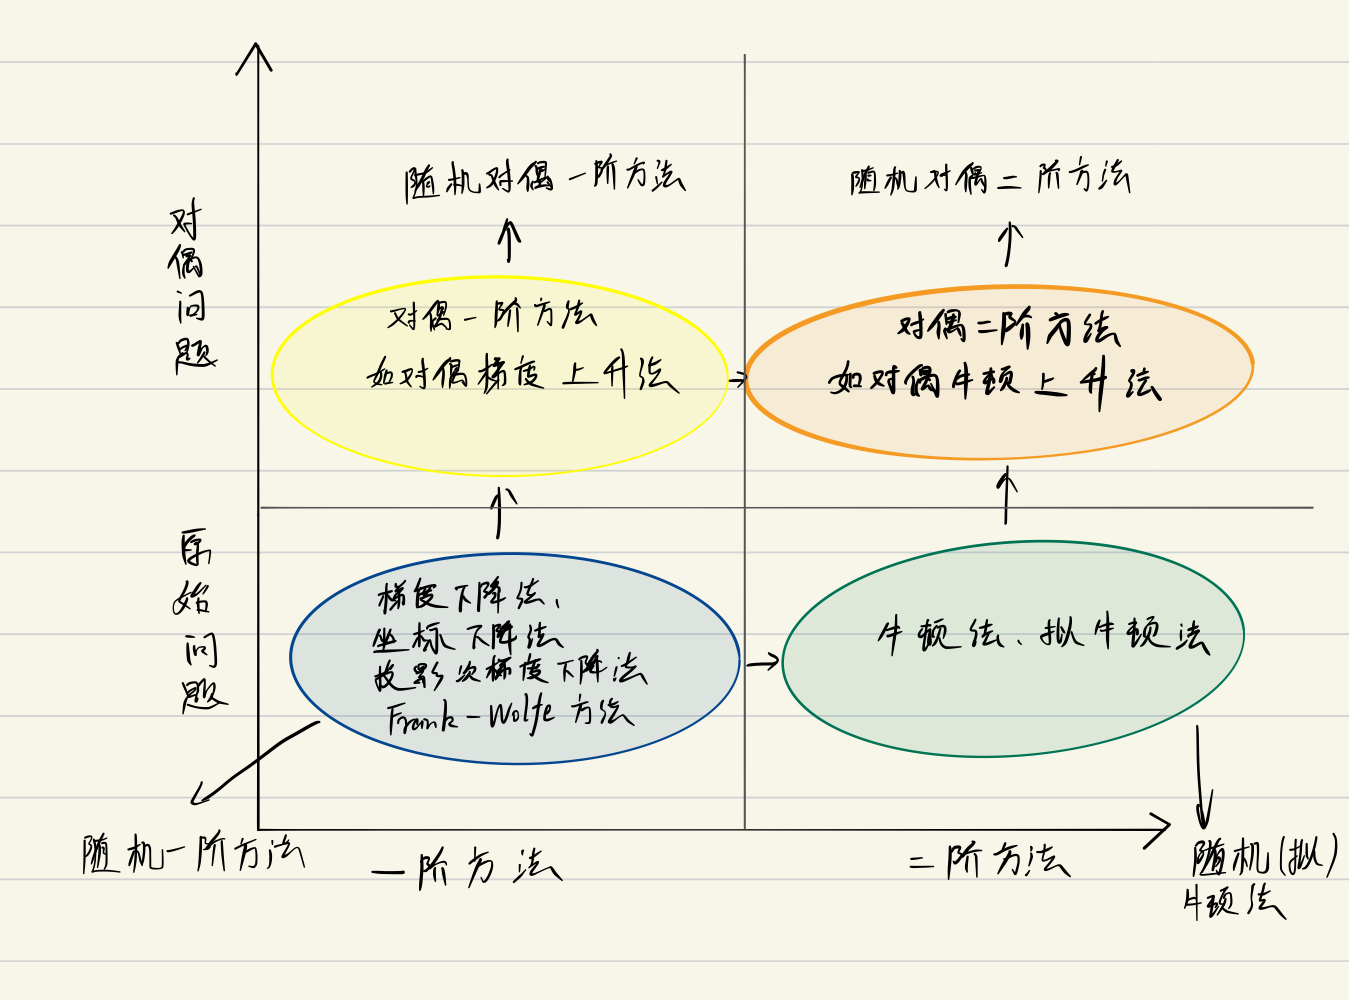 随机对偶一阶方法
随机对偶二阶方法
对偶问题
对偶一阶方法
如对偶梯度上升法
对偶二阶方法
如对偶牛顿上升法
原始问题
梯度下降法、
坐标下降法
投影次梯度下降法
Frank-Wolfe方法
牛顿法、拟牛顿法
随机一阶方法
一阶方法
二阶方法
随机(拟)
牛顿法